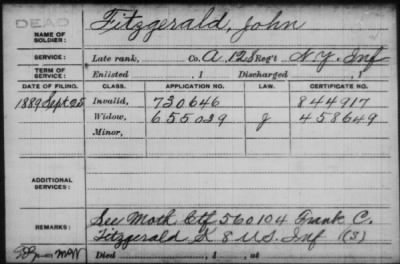 DEAD
NAME OF SOLDIER: Fitzgerald, John
SERVICE: Late rank, Co. A, 128 Reg't N.Y. Inf
TERM OF SERVICE: Enlisted , 1 Discharged , 1
DATE OF FILING. CLASS. APPLICATION NO. LAW. CERTIFICATE NO.
1889 Sept 25 Invalid, 730646 844917
Widow, 655029 g 458649
Minor,
ADDITIONAL SERVICES:
REMARKS: See Moth Ctf 560104 Frank C.
Fitzgerald K 8 U.S. Inf (S)
Died , 1 , at